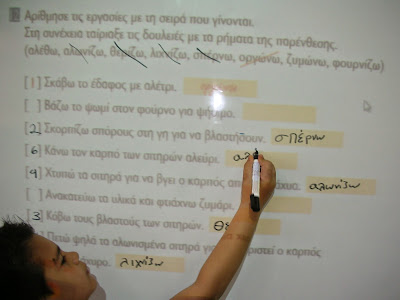 Αρίθμησε τις εργασίες με τη σειρά που γίνονται.
Στη συνέχεια ταίριαξε τις δουλειές με τα ρήματα της παρένθεσης.
(αλέθω, αλωνίζω, θερίζω, λιχνίζω, σπέρνω, οργώνω, ζυμώνω, φουρνίζω)
[1] Σκάβω το έδαφος με αλέτρι. οργώνω
[ ] Βάζω το ψωμί στον φούρνο για ψήσιμο.
[2] Σκορπίζω σπόρους στη γη για να βλαστήσουν. σπέρνω
[6] Κάνω τον καρπό των σιτηρών αλεύρι. αλ
[4] Χτυπώ τα σιτηρά για να βγει ο καρπός από στάχυα. αλωνίζω
[ ] Ανακατεύω τα υλικά και φτιάχνω ζυμάρι.
[3] Κόβω τους βλαστούς των σιτηρών. θε
Πετώ ψηλά τα αλωνισμένα σιτηρά για χωριστεί ο καρπός
άχυρο. λιχνίζω